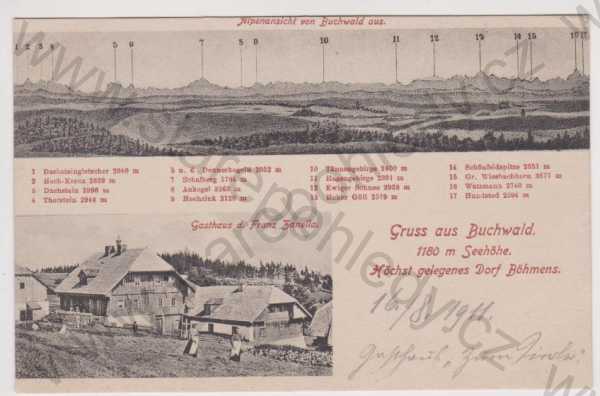 Alpenansicht von Buchwald aus.
1 2 3 4 5 6 7 8 9 10 11 12 13 14 15 16 17
1 Dachsteingletscher 2640 m
2 Hoch-Kreuz 2839 m
3 Dachstein 2996 m
4 Thorstein 2944 m
5 u. 6 Donnerkogeln 2052 m
7 Schafberg 1780 m
8 Ankogel 3263 m
9 Hochzink 2120 m
10 Tännengebirge 2400 m
11 Hagengebirge 2391 m
12 Ewiger Schnee 2938 m
13 Hoher Göll 2519 m
14 Schönfeldspitze 2651 m
15 Gr. Wiesbachhorn 3577 m
16 Watzmann 2740 m
17 Hundstod 2594 m
Gasthaus d. Franz Zanella.
Gruss aus Buchwald.
1180 m Seehöhe.
Höchst gelegenes Dorf Böhmens.
16/8. 1911.
Gasthaus